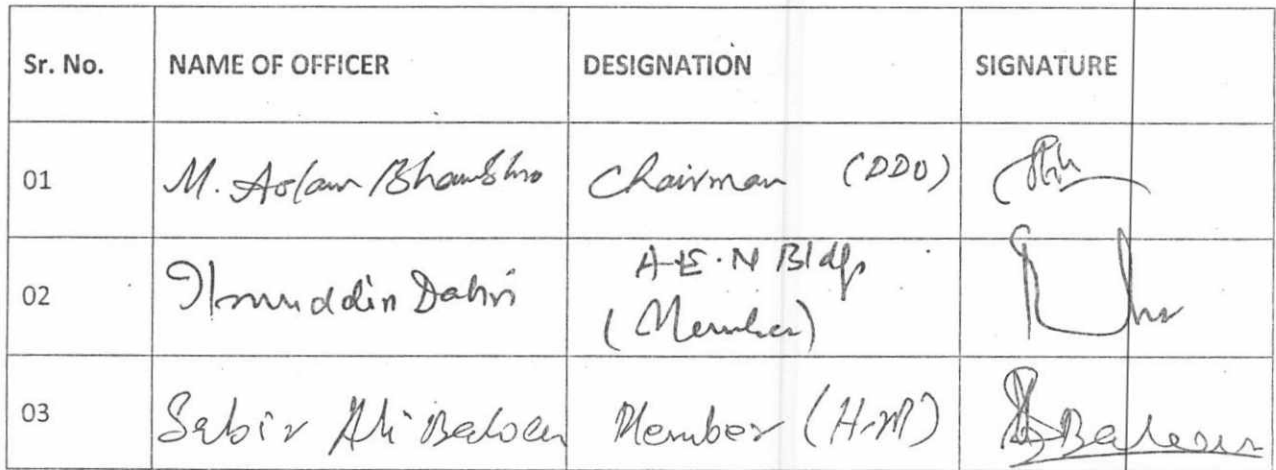 Sr. No. NAME OF OFFICER DESIGNATION SIGNATURE
01 M. Aslam Bhambhro Chairman (DDO)
02 Dahri A.E.N Bldgs
(Member)
03 Sabir Ali Member (H.M)